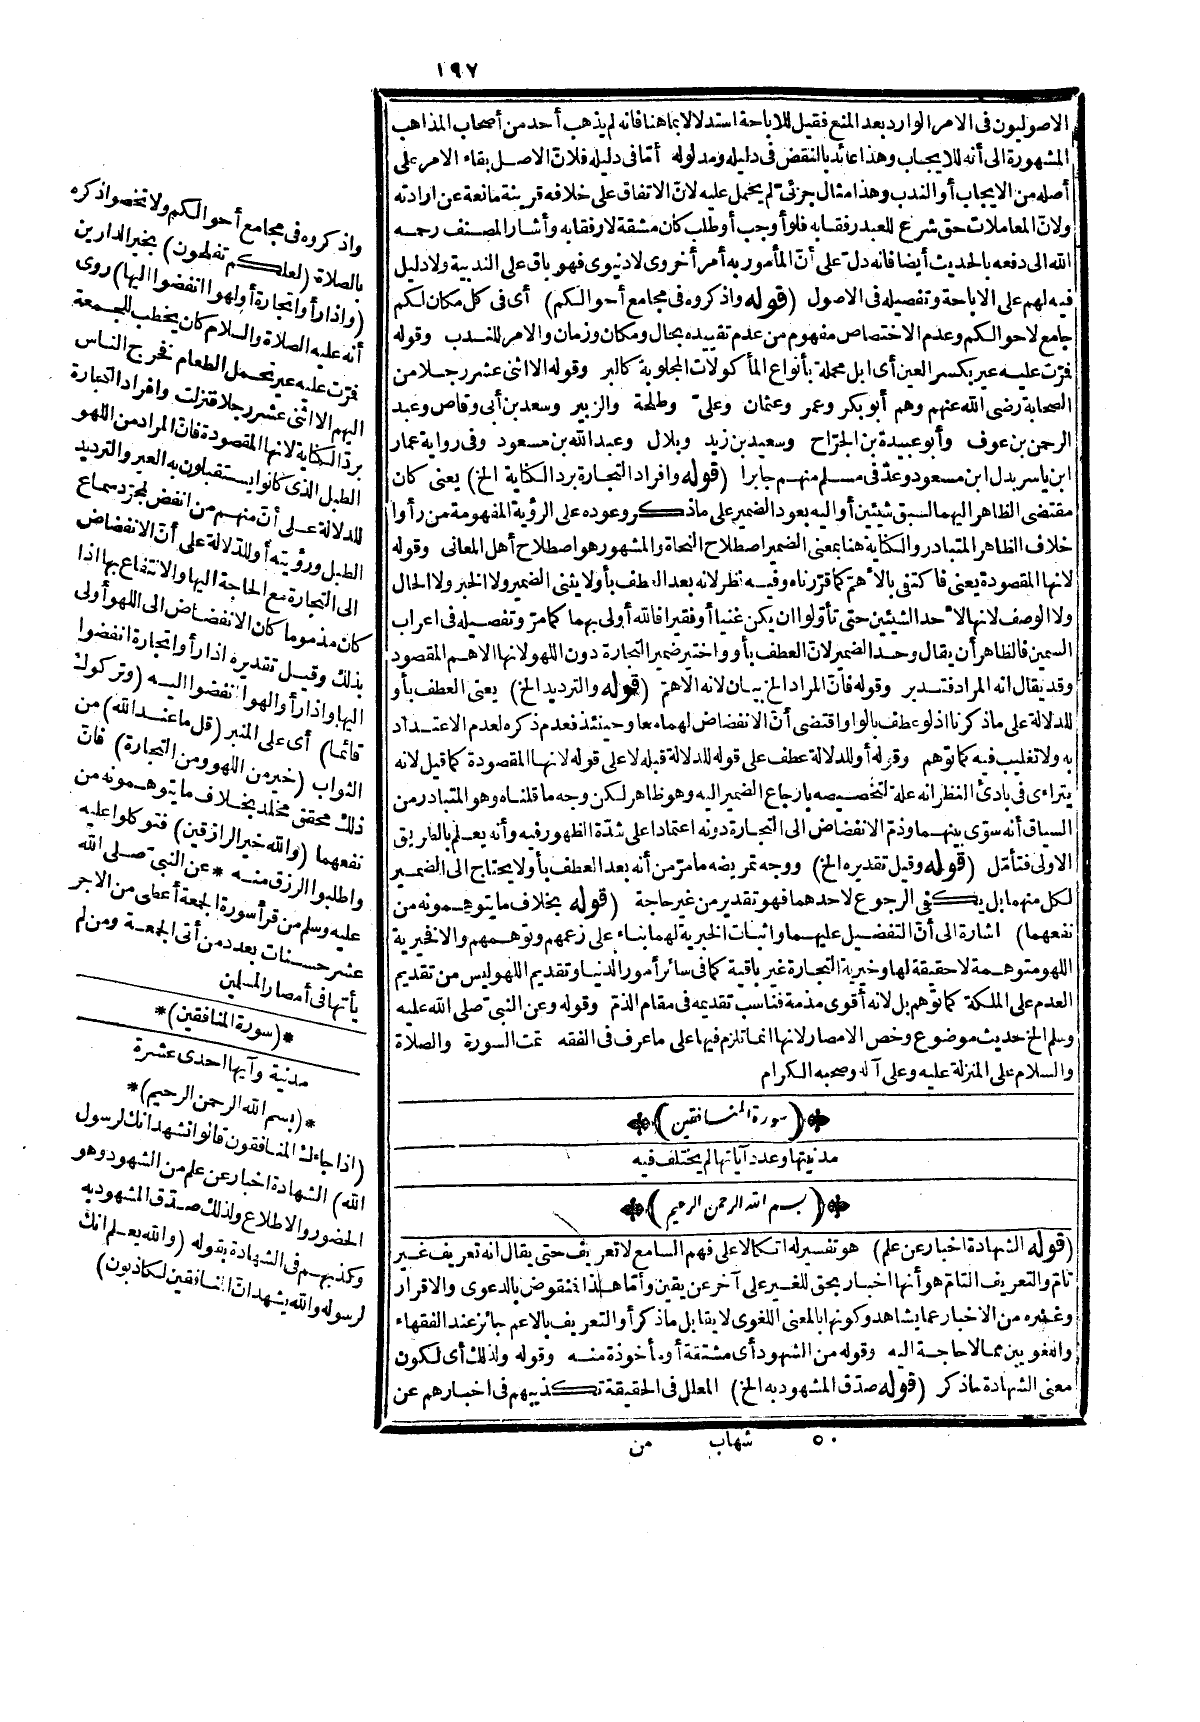 ١٩٧
الاصوليون فى الامر الوارد بعد المنع فقيل للاباحة استدلالا بما هنا فانه لم يذهب أحد من أصحاب المذاهب
المشهورة الى أنه للايجاب وهذا عائد بالنقض فى دليله ومدلوله أمّا فى دليله فلانّ الاصل بقاء الامر على
أصله من الايجاب أو الندب وهذا مثال جزئىّ لم يحمل عليه لانّ الاتفاق على خلافه قرينة مانعة عن ارادته
ولانّ المعاملات حق شرع للعبد رفقا به فلو أوجب أو طلب كان مشقة لا رفقا به وأشار المصنف رحمه
الله الى دفعه بالحديث أيضا فانه دلّ على أنّ المأمور به أمر أخروى لا دنيوى فهو باق على الندبية ولا دليل
فيه لهم على الاباحة وتفصيله فى الاصول (قوله واذكروه فى مجامع أحوالكم) أى فى كل مكان لكم
جامع لاحوالكم وعدم الاختصاص مفهوم من عدم تقييده بحال ومكان وزمان والامر للندب وقوله
فمرّت عليه عير بكسر العين أى ابل محملة بأنواع المأكولات المجلوبة كالبر وقوله الا اثنى عشر رجلا من
الصحابة رضى الله عنهم وهم أبو بكر وعمر وعثمان وعلىّ وطلحة والزبير وسعد بن أبى وقاص وعبد
الرحمن بن عوف وأبو عبيدة بن الجرّاح وسعيد بن زيد وبلال وعبد الله بن مسعود وفى رواية عمار
ابن ياسر بدل ابن مسعود وعدّ فى مسلم منهم جابرا (قوله وافراد التجارة بردّ الكناية الخ) يعنى كان
مقتضى الظاهر اليهما لسبق شيئين أو اليه بعود الضمير على ما ذكر وعوده على الرؤية المفهومة من رأوا
خلاف الظاهر المتبادر والكناية هنا بمعنى الضمير اصطلاح النحاة والمشهور هو اصطلاح أهل المعانى وقوله
لانها المقصودة يعنى فاكتفى بالأهمّ كما قرّرناه وفيه نظر لانه بعد العطف بأو لا يثنى الضمير ولا الخبر ولا الحال
ولا الوصف لانها لأحد الشيئين حتى تأولوا ان يكن غنيا أو فقيرا فالله أولى بهما كما مرّ وتفصيله فى اعراب
السمين فالظاهر أن يقال وحد الضمير لانّ العطف بأو واختير ضمير التجارة دون اللهو لانها الاهم المقصود
وقد يقال انه المراد فتدبر وقوله فانّ المراد الخ بيان لانه الاهمّ (قوله والترديد الخ) يعنى العطف بأو
للدلالة على ما ذكرنا اذ لو عطف بالواو اقتضى أنّ الانفضاض لهما معا وحينئذ فعدم ذكره لعدم الاعتداد
به ولا تغليب فيه كما توهم وقوله أو للدلالة عطف على قوله للدلالة قبله لا على قوله لانها المقصودة كما قيل لانه
يتراءى فى بادئ النظر انه علة لتخصيصه بارجاع الضمير اليه وهو ظاهر لكن وجه ما قلناه وهو المتبادر من
السياق أنه سوّى بينهما وذمّ الانفضاض الى التجارة دونه اعتمادا على شدّة الظهور فيه وأنه يعلم بالطريق
الاولى فتأمّل (قوله وقيل تقديره الخ) ووجه تمريضه ما مرّ من أنه بعد العطف بأو لا يحتاج الى الضمير
لكل منهما بل يكفى الرجوع لاحدهما فهو تقدير من غير حاجة (قوله بخلاف ما يتوهمونه من
نفعهما) اشارة الى أنّ التفضيل عليهما واثبات الخيرية لهما بناء على زعمهم وتوهمهم والافخيرية
اللهو متوهمة لا حقيقة لها وخيرية التجارة غير باقية كما فى سائر أمور الدنيا وتقديم اللهو ليس من تقديم
العدم على الملكة كما توهم بل لانه أقوى مذمة فناسب تقديمه فى مقام الذمّ وقوله وعن النبىّ صلى الله عليه
وسلم الخ حديث موضوع وخص الامصار لانها انما تلزم فيها على ما عرف فى الفقه تمت السورة والصلاة
والسلام على المنزلة عليه وعلى آله وصحبه الكرام
(سورة المنافقين)
مدنيتها وعدد آياتها لم يختلف فيه
(بسم الله الرحمن الرحيم)
(قوله الشهادة اخبار عن علم) هو تفسير له اتكالا على فهم السامع لا تعريف حتى يقال انه تعريف غير
تامّ والتعريف التامّ هو أنها اخبار بحق للغير على آخر عن يقين وأمّا هذا فمنقوض بالدعوى والاقرار
وغيره من الاخبار عما يشاهد وكونها بالمعنى اللغوى لا يقابل ما ذكر أو التعريف بالاعم جائز عند الفقهاء
واللغويين مما لا حاجة اليه وقوله من الشهود أى مشتقة أو مأخوذة منه وقوله ولذلك أى لكون
معنى الشهادة ما ذكر (قوله صدّق المشهود به الخ) المعلل فى الحقيقة تكذيبهم فى اخبارهم عن
٥٠ شهاب من
واذكروه فى مجامع أحوالكم ولا تخصوا ذكره
بالصلاة (لعلكم تفلحون) بخير الدارين
(واذا رأوا تجارة أو لهوا انفضوا اليها) روى
أنه عليه الصلاة والسلام كان يخطب للجمعة
فمرّت عليه عير تحمل الطعام فخرج الناس
اليهم الا اثنى عشر رجلا فنزلت وافراد التجارة
بردّ الكناية لانها المقصودة فانّ المراد من اللهو
الطبل الذى كانوا يستقبلون به العير والترديد
للدلالة على أنّ منهم من انفض لمجرّد سماع
الطبل ورؤيته أو للدلالة على أنّ الانفضاض
الى التجارة مع الحاجة اليها والانتفاع بها اذا
كان مذموما كان الانفضاض الى اللهو أولى
بذلك وقيل تقديره اذا رأوا تجارة انفضوا
اليها واذا رأوا لهوا انفضوا اليه (وتركوك
قائما) أى على المنبر (قل ما عند الله) من
الثواب (خير من اللهو ومن التجارة) فانّ
ذلك محقق مخلد بخلاف ما يتوهمونه من
نفعهما (والله خير الرازقين) فتوكلوا عليه
واطلبوا الرزق منه * عن النبىّ صلى الله
عليه وسلم من قرأ سورة الجمعة أعطى من الاجر
عشر حسنات بعدد من أتى الجمعة ومن لم
يأتها فى أمصار المسلمين
*(سورة المنافقين)*
مدنية وآيها احدى عشرة
*(بسم الله الرحمن الرحيم)*
(اذا جاءك المنافقون قالوا نشهد انك لرسول
الله) الشهادة اخبار عن علم من الشهود وهو
الحضور والاطلاع ولذلك صدّق المشهود به
وكذبهم فى الشهادة بقوله (والله يعلم انك
لرسوله والله يشهد انّ المنافقين لكاذبون)